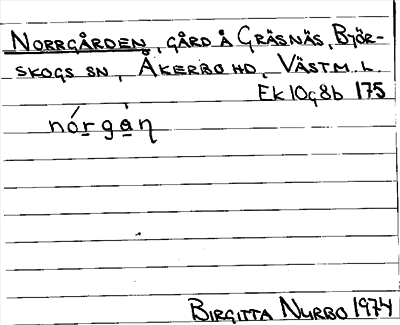 NORRGÅRDEN, GÅRD Å GRÄSNÄS, BJÖR-
SKOGS SN, ÅKERBO HD, VÄSTM. L.
Ek 10g8b 175
nórgàn
BIRGITTA NURBO 1974